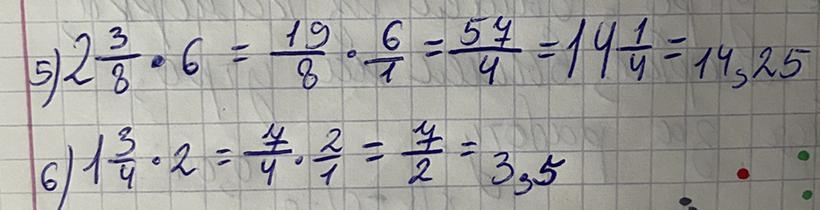 5) 2 3/8 · 6 = 19/8 · 6/1 = 57/4 = 14 1/4 = 14,25
6) 1 3/4 · 2 = 7/4 · 2/1 = 7/2 = 3,5